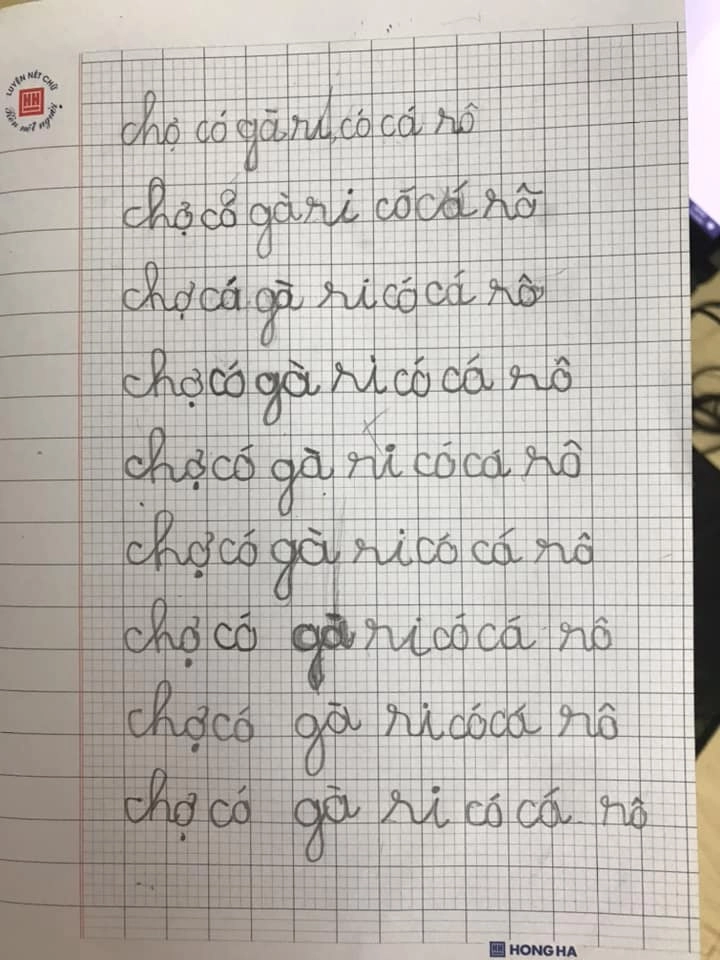 LUYỆN NÉT CHỮ
Rèn nết người
HH
chợ có gà ri, có cá rô
chợ cố gà ri có cá rỗ
chợ cá gà ri có cá rô
chợ có gà ri có cá rô
chợ có gà ri có ca rô
chợ có gà ri có cá rô
chợ có gà ri có cá rô
chợ có gà ri có cá rô
chợ có gà ri có cá rô
HH HONG HA